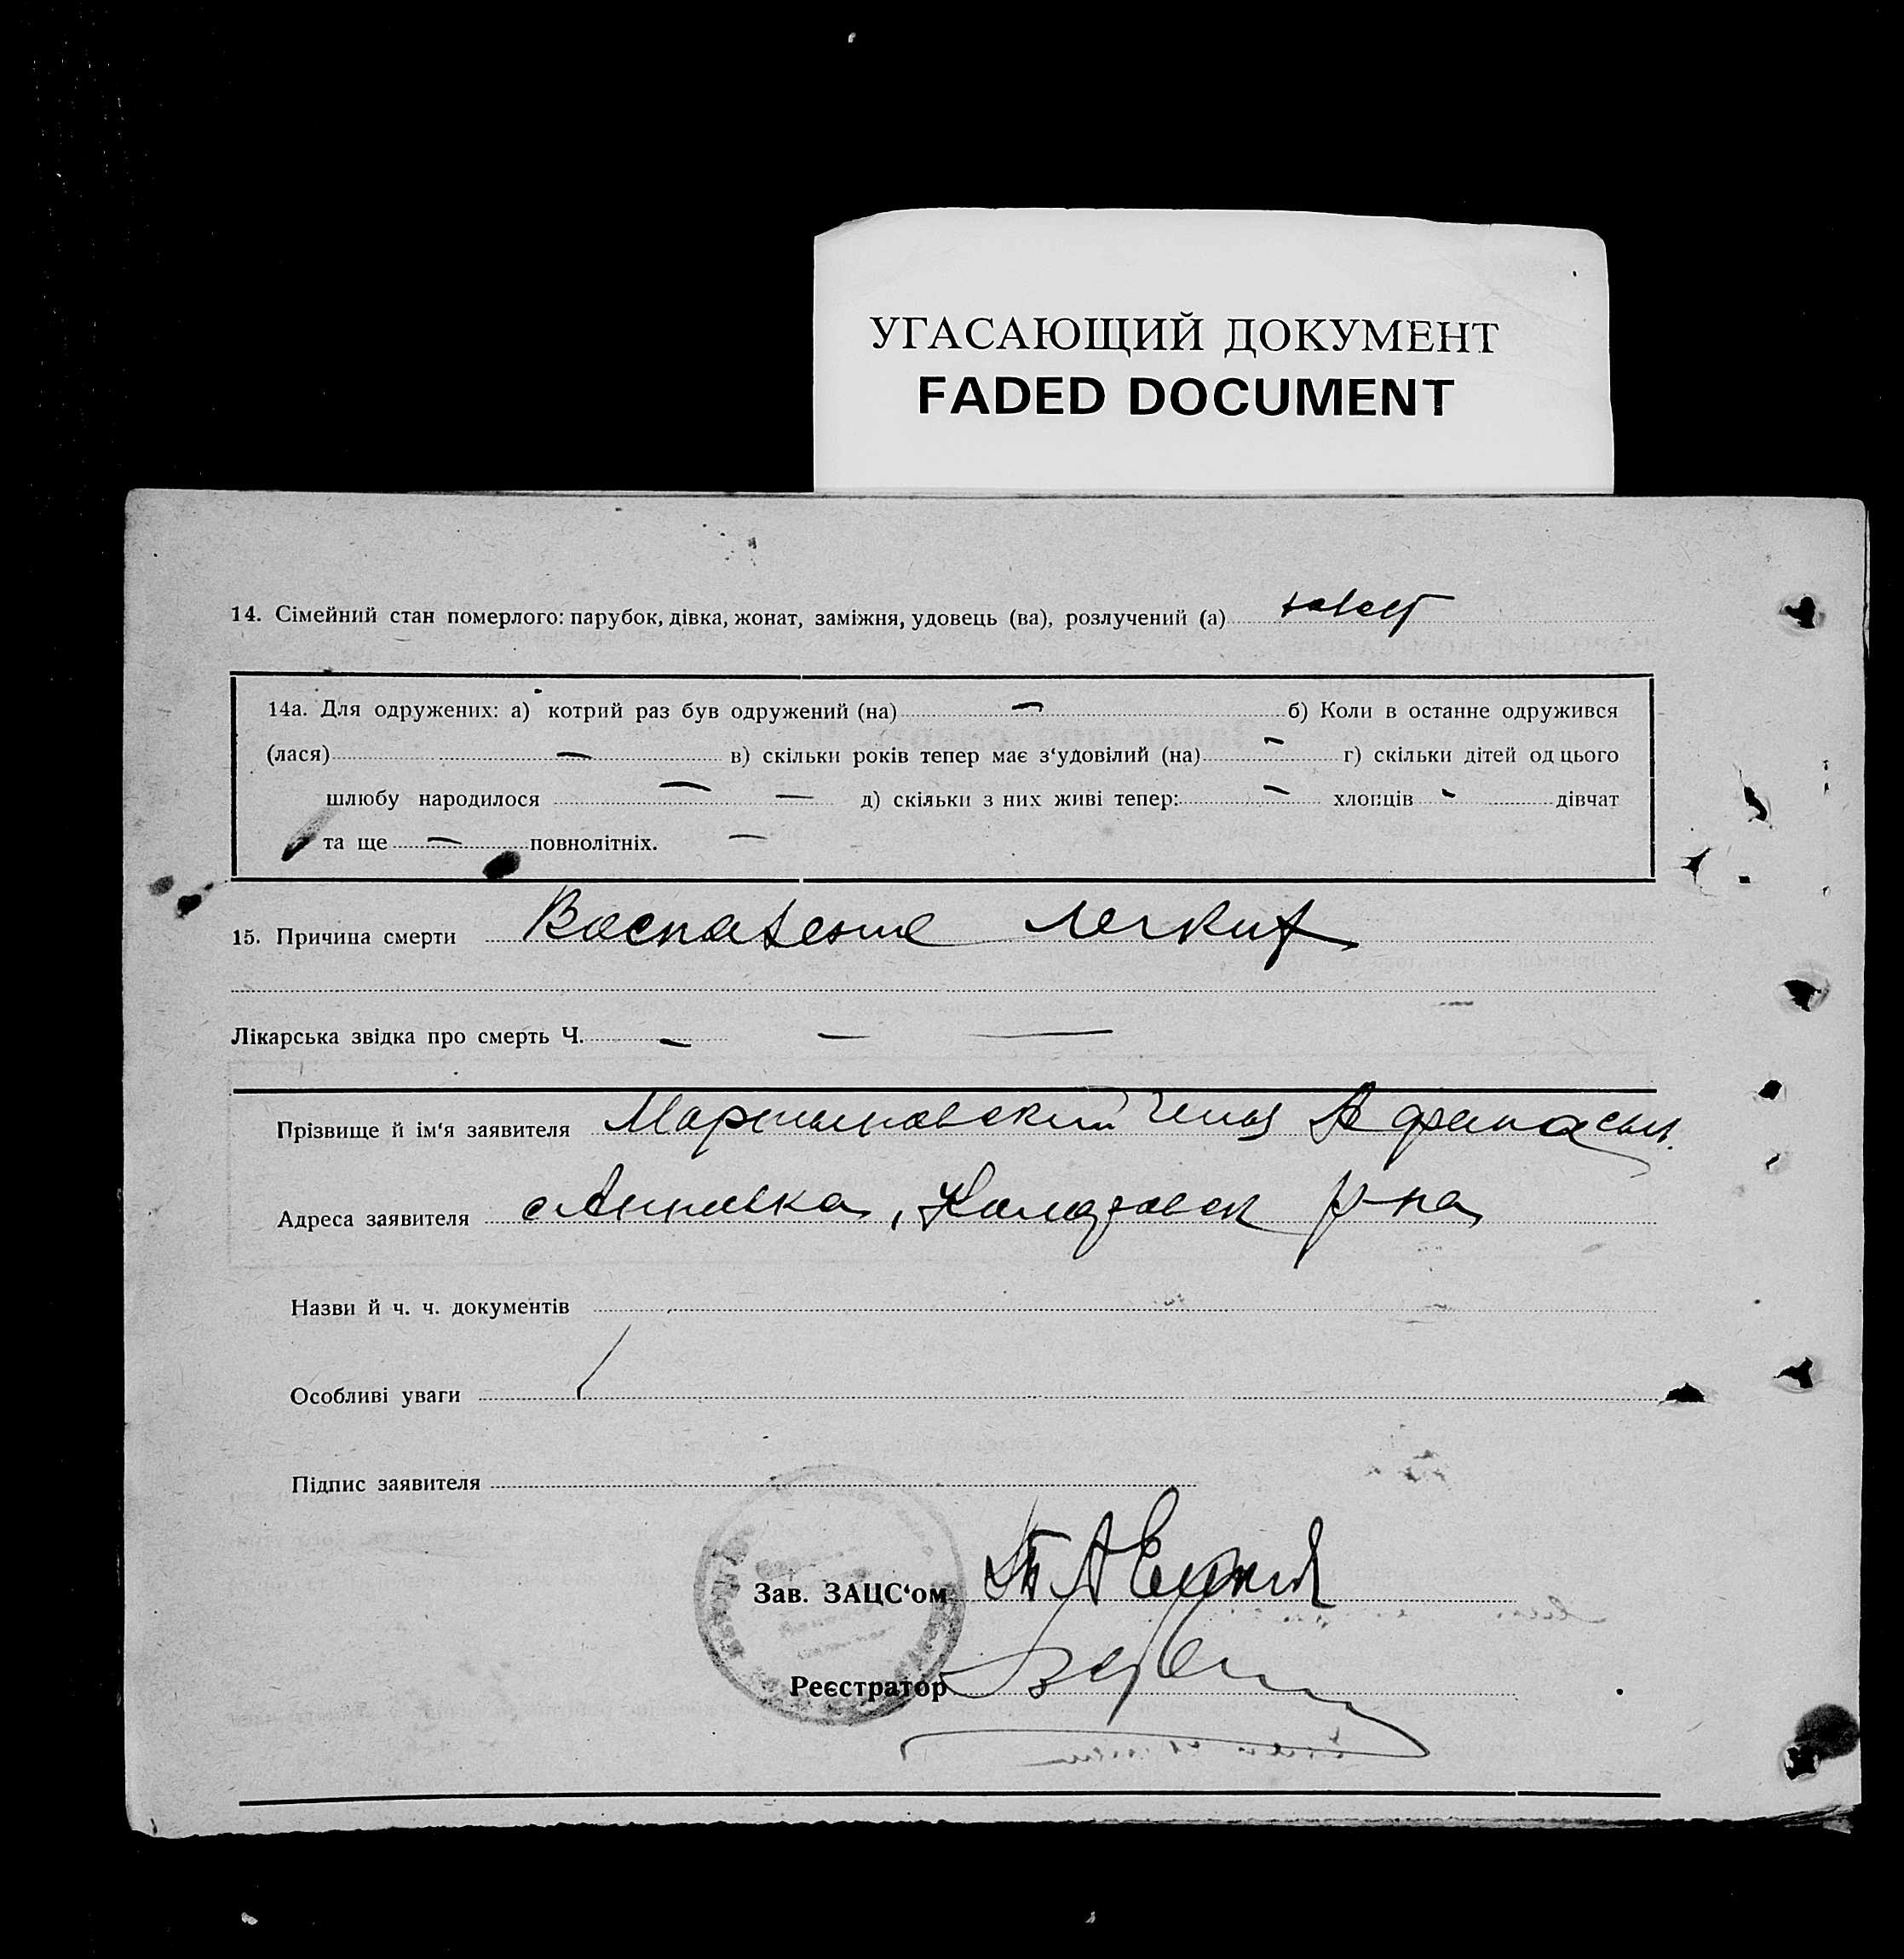 УГАСАЮЩИЙ ДОКУМЕНТ
FADED DOCUMENT
14. Сімейний стан померлого: парубок, дівка, жонат, заміжня, удовець (ва), розлучений (а)
14а. Для одружених: а) котрий раз був одружений (на) — б) Коли в останнє одружився
(лася) — в) скільки років тепер має з‘удовілий (на) — г) скільки дітей од цього
шлюбу народилося — — д) скільки з них живі тепер: — хлопців - дівчат
та ще — повнолітніх. —
15. Причина смерти Воспаление легких
Лікарська звідка про смерть Ч. — — —
Прізвище й ім‘я заявителя Мартыновский Афанасьев.
Адреса заявителя с Анновка, р-на
Назви й ч. ч. документів
Особливі уваги
Підпис заявителя
Зав. ЗАЦС‘ом
Реєстратор